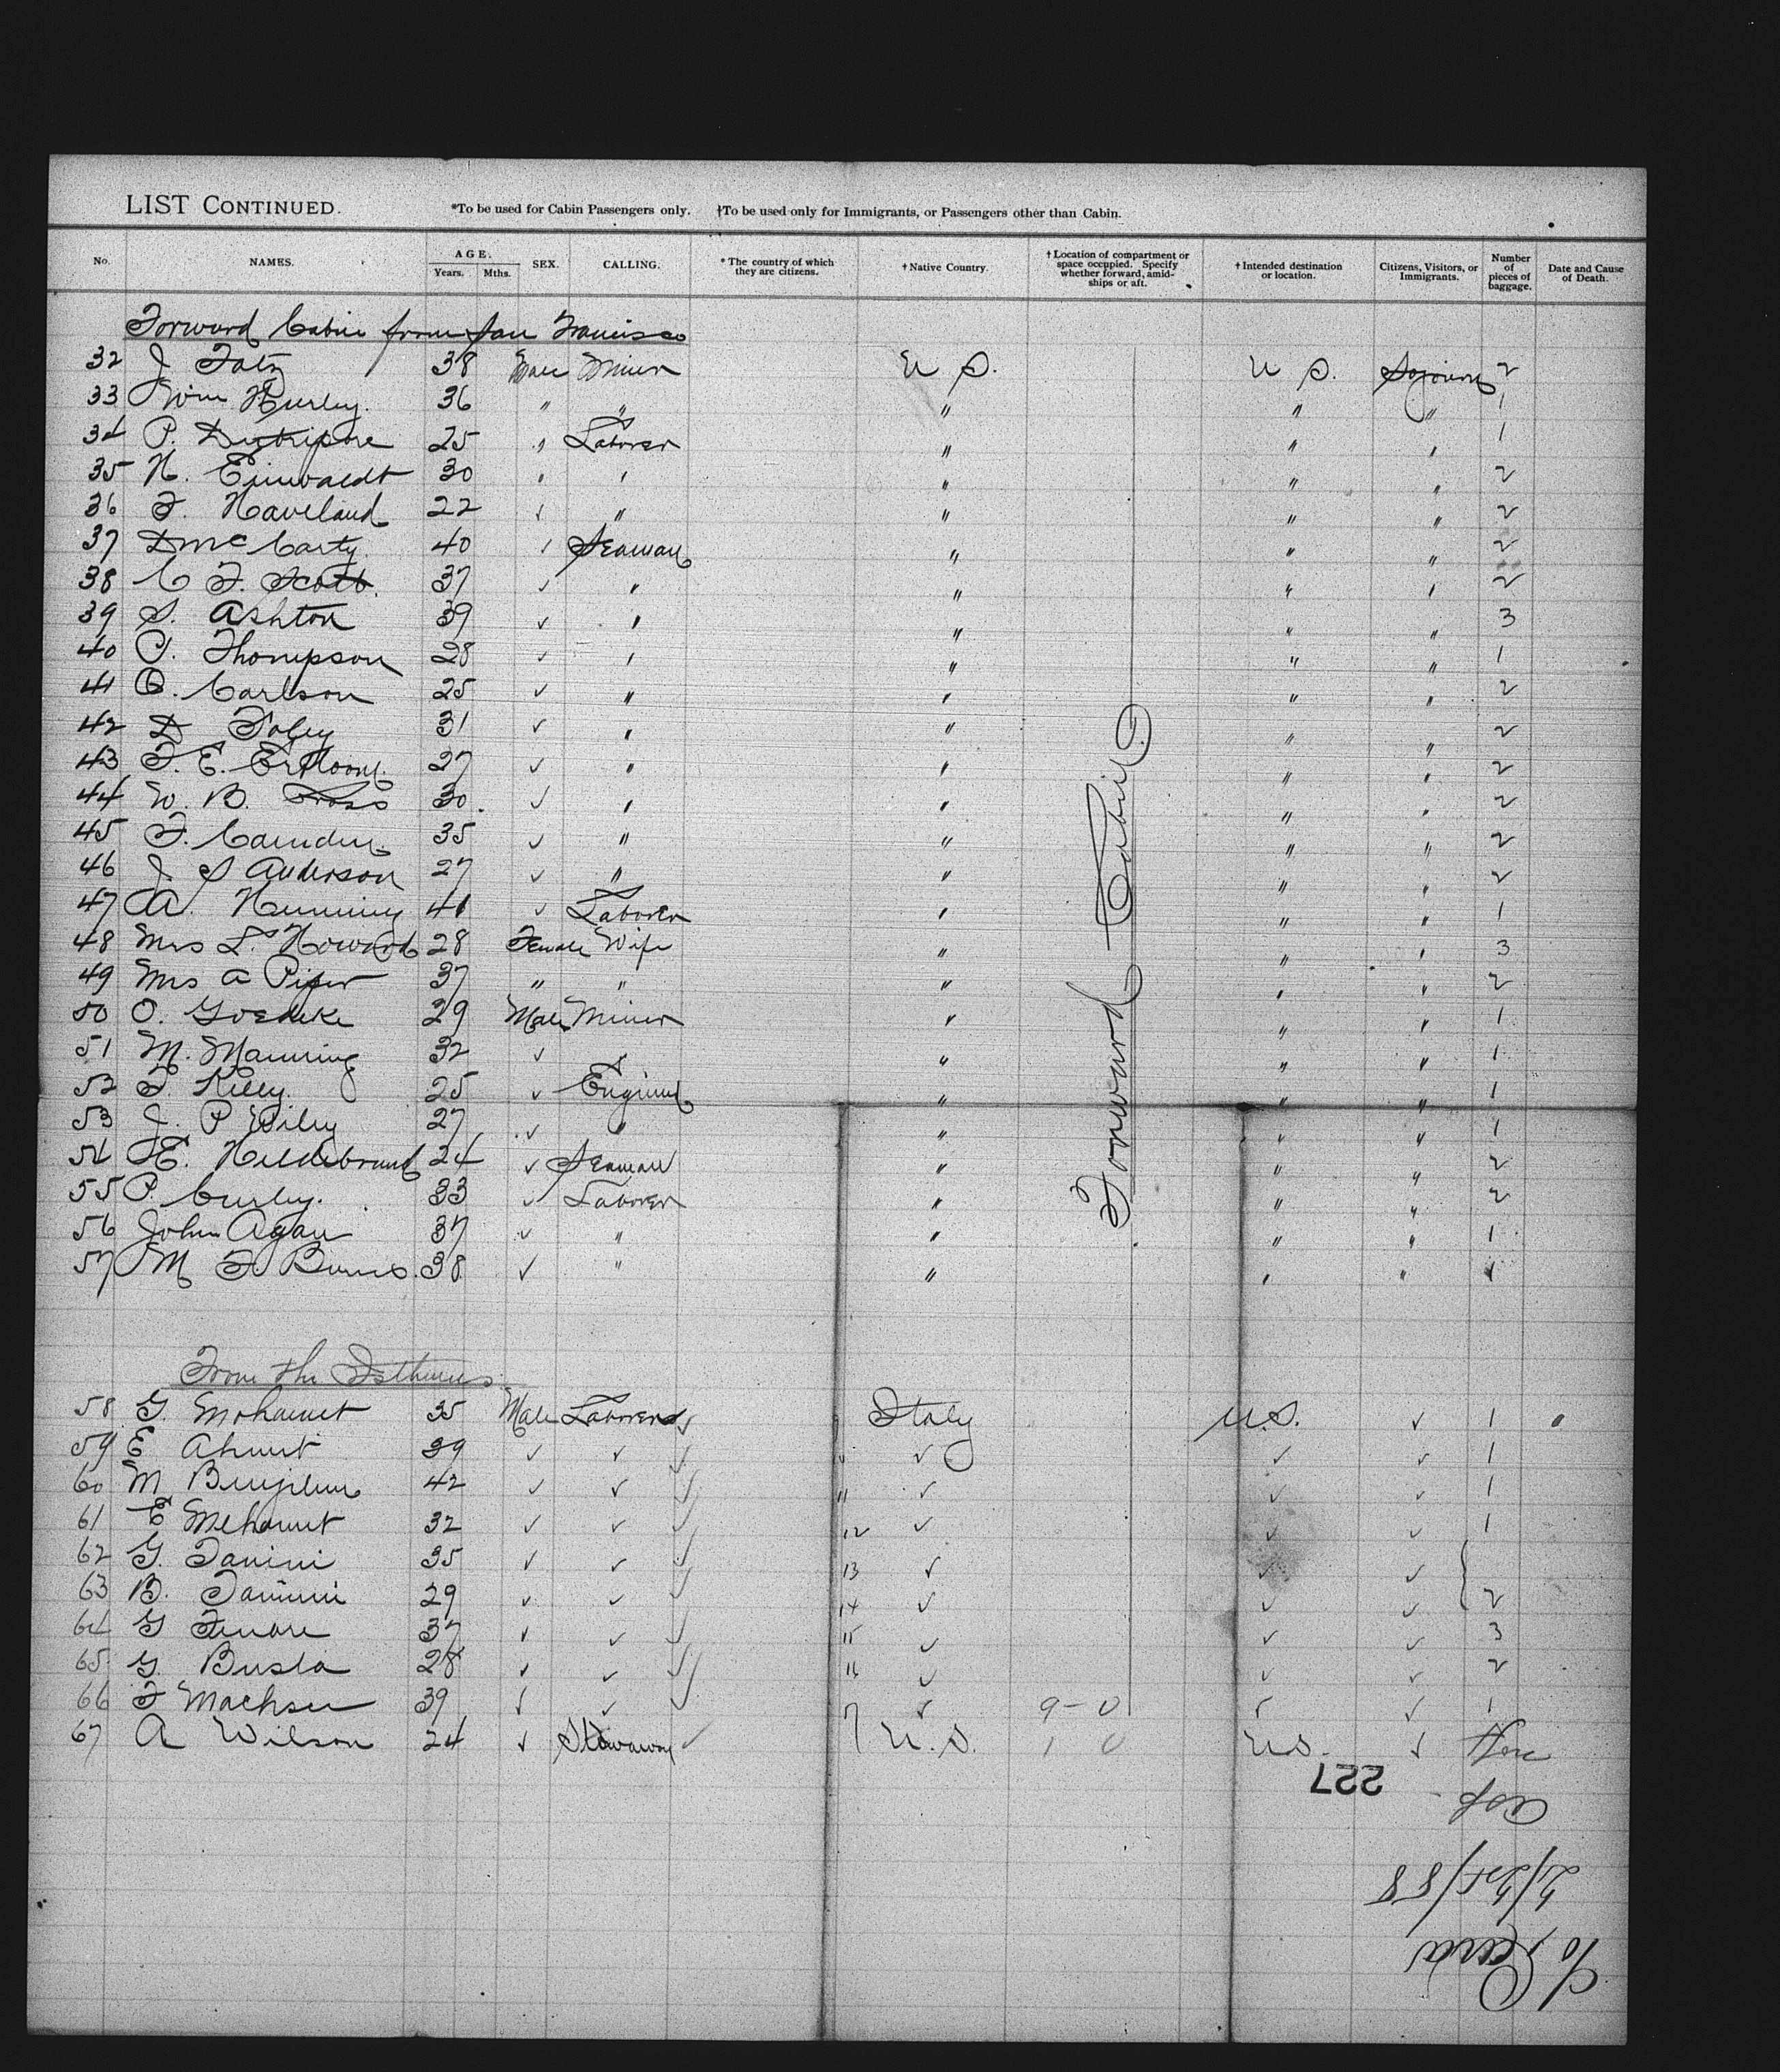 LIST CONTINUED. *To be used for Cabin Passengers only. †To be used only for Immigrants, or Passengers other than Cabin.
No. NAMES. AGE. Years. Mths. SEX. CALLING. *The country of which they are citizens. †Native Country. †Location of compartment or space occupied. Specify whether forward, amidships or aft. †Intended destination or location. Citizens, Visitors, or Immigrants. Number of pieces of baggage. Date and Cause of Death.
Forward Cabin from San Francisco
32 J 38 Male Miner U S. U S. Sojourn 2
33 Wm Hurley. 36 " " " " " 1
34 P. 25 " Laborer " " " 1
35 N. Einwaldt 30 " " " " " 2
36 F. Haveland 22 " " " " " 2
37 D McCarty. 40 ✓ Seaman " " " 2
38 C F. Scott. 37 ✓ " " " " 2
39 S. Ashton 39 ✓ " " " " 3
40 C. Thompson 28 ✓ " " " " 1
41 O. Carlson 25 ✓ " " " " 2
42 D Foley 31 ✓ " " " " 2
43 F. E. 27 ✓ " " " " 2
44 W. B. Cross 30. ✓ " " " " 2
45 F. Camden. 35 ✓ " " " " 2
46 J. S Anderson 27 ✓ " " " " 2
47 A. Henning 41 ✓ Laborer " " " 1
48 Mrs L. Howard 28 Female Wife " " " 3
49 Mrs A Piper 37 " " " " " 2
50 O. Goedeke 29 Male Miner " " " 1
51 M. Manning 32 ✓ " " " " 1
52 F. Kelly. 25 ✓ Engineer " " " 1
53 J. P Wiley 27 ✓ " " " " 1
54 E. Hildebrand 24 ✓ Seaman " " " 2
55 P. Curley. 33 ✓ Laborer " " " 2
56 John Agan 37 ✓ " " " " 1
57 M F Burns. 38 ✓ " " " " 1
Forward Cabin
From the Isthmus
58 G. Mohamet 35 Male Laborer Italy U.S. ✓ 1
59 E Ahmet 39 ✓ ✓ ✓ ✓ ✓ 1
60 M 42 ✓ ✓ 11 ✓ ✓ ✓ 1
61 E Mehamet 32 ✓ ✓ 12 ✓ ✓ ✓ 1
62 G. Tanini 35 ✓ ✓ 13 ✓ ✓ ✓
63 B. Tanini 29 ✓ ✓ 14 ✓ ✓ ✓ 2
64 G 37 ✓ ✓ 15 ✓ ✓ ✓ 3
65 G. Busla 28 ✓ ✓ 16 ✓ ✓ ✓ 2
66 F Machsen 39 ✓ ✓ 17 ✓ 9-0 ✓ ✓ 1
67 A Wilson 24 ✓ Stowaway U.S. 1 0 U.S. ✓ None
227